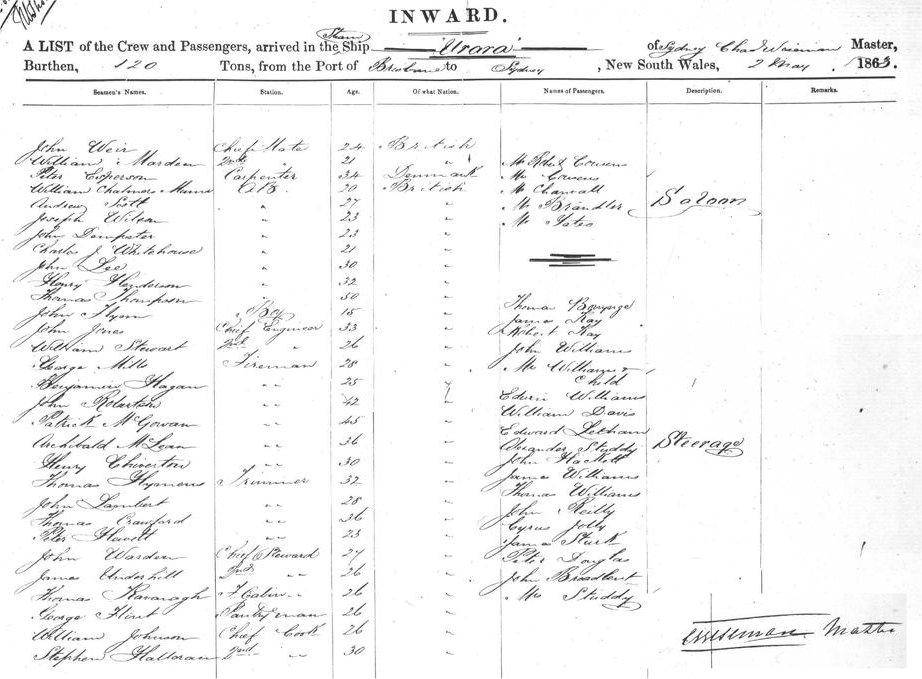 INWARD.
A LIST of the Crew and Passengers, arrived in the Steam Ship "Urara" of Sydney Chas Wiseman Master,
Burthen, 120 Tons, from the Port of Brisbane to Sydney, New South Wales, 2 May 1863.
Seamen's Names. Station. Age. Of what Nation. Names of Passengers. Description. Remarks.
John Weir Chief Mate 24 British
William Marden 2nd " 21 " Mr Robert Cousens
Peter Esperson Carpenter 34 Denmark Mr Cowens
William Chalmers A.B. 20 British Mr
Andrew Scott " 27 " Mr Brandler Saloon
Joseph Wilson " 23 " Mr Yates
John Dempster " 23 "
Charles J Whitehouse " 21 "
John Lee " 30 "
Henry Henderson " 32 "
Thomas Thompson " 50 "
John Flynn Boy 15 " Thomas
John Jones Chief Engineer 33 " James Kay
Robert Kay
William Stewart 2nd " 26 " John Williams
George Mills Fireman 28 " Mr Williams &
Child
Benjamin Hagan " " 25 " Edwin Williams
John Robertson " " 42 " William Davis
Patrick McGowan " " 45 " Edward
Archibald McLean " " 36 " Alexander Studdy Steerage
John Hackett
Henry Chiverton " " 30 " James Williams
Thomas Hymens Trimmer 32 " Thomas Williams
John Lambert " " 28 " John Reilly
Thomas Crawford " " 36 " Cyrus Jolly
Peter Hewitt " " 23 " James Sturk
John Warden Chief Steward 27 " Peter Douglas
James Underhill 2nd " " 26 " John Broadbent
Thomas Kavanagh F. Cabin " 26 " Mr Studdy
George Flint Pantryman 26 "
William Johnson Chief Cook 26 " CWiseman Master
Stephen Halloran 2nd " 30 "